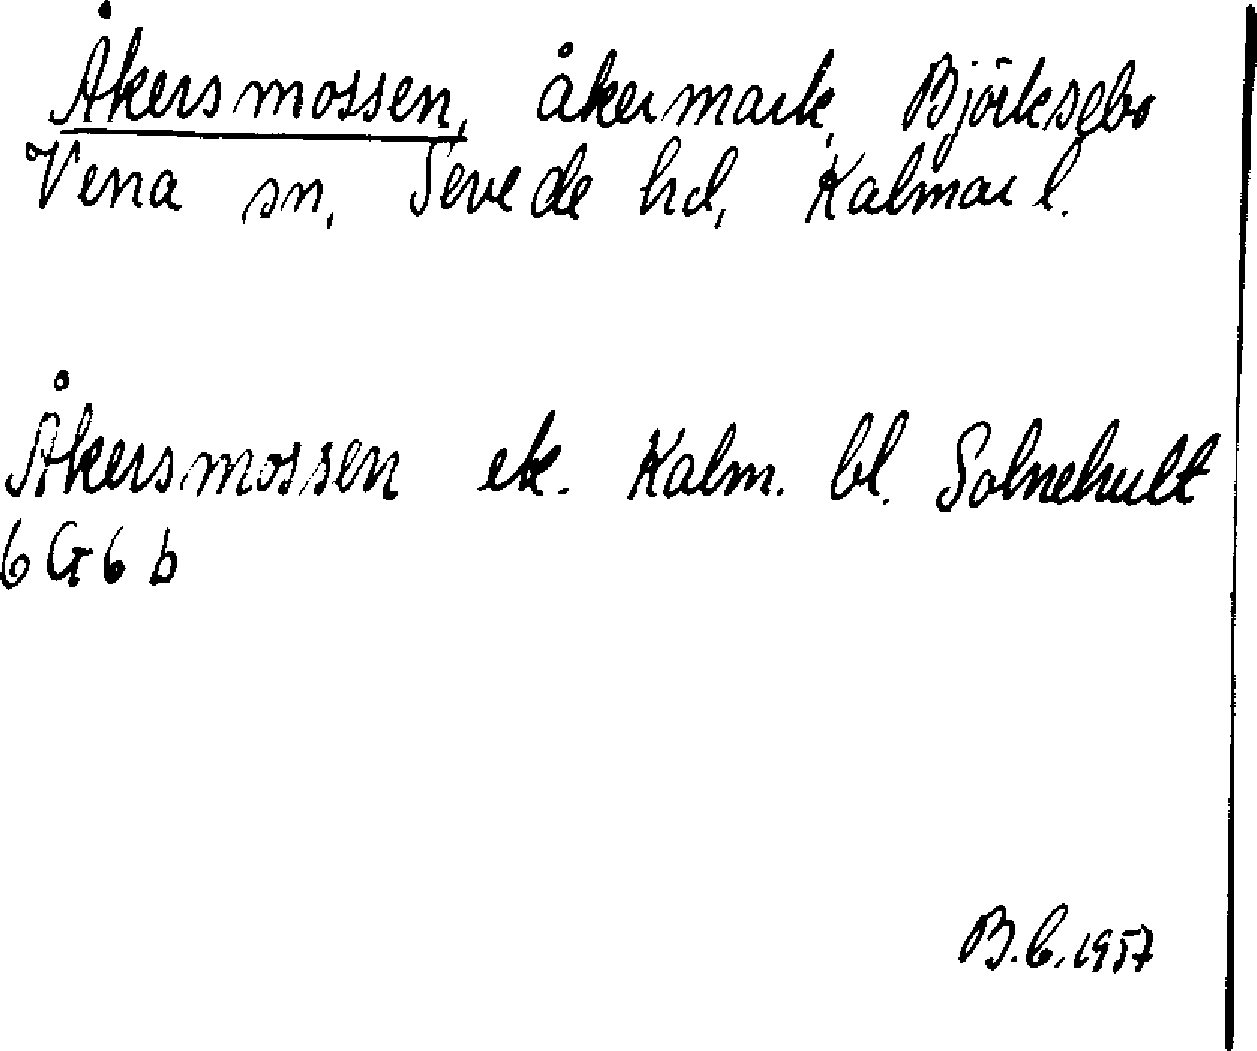 Åkersmossen, åkermark, Björksebo
Vena sn, Sevede hd, Kalmar l.
Åkersmossen ek. Kalm. bl. Solnehult
6 G 6 b
B.C. 1957